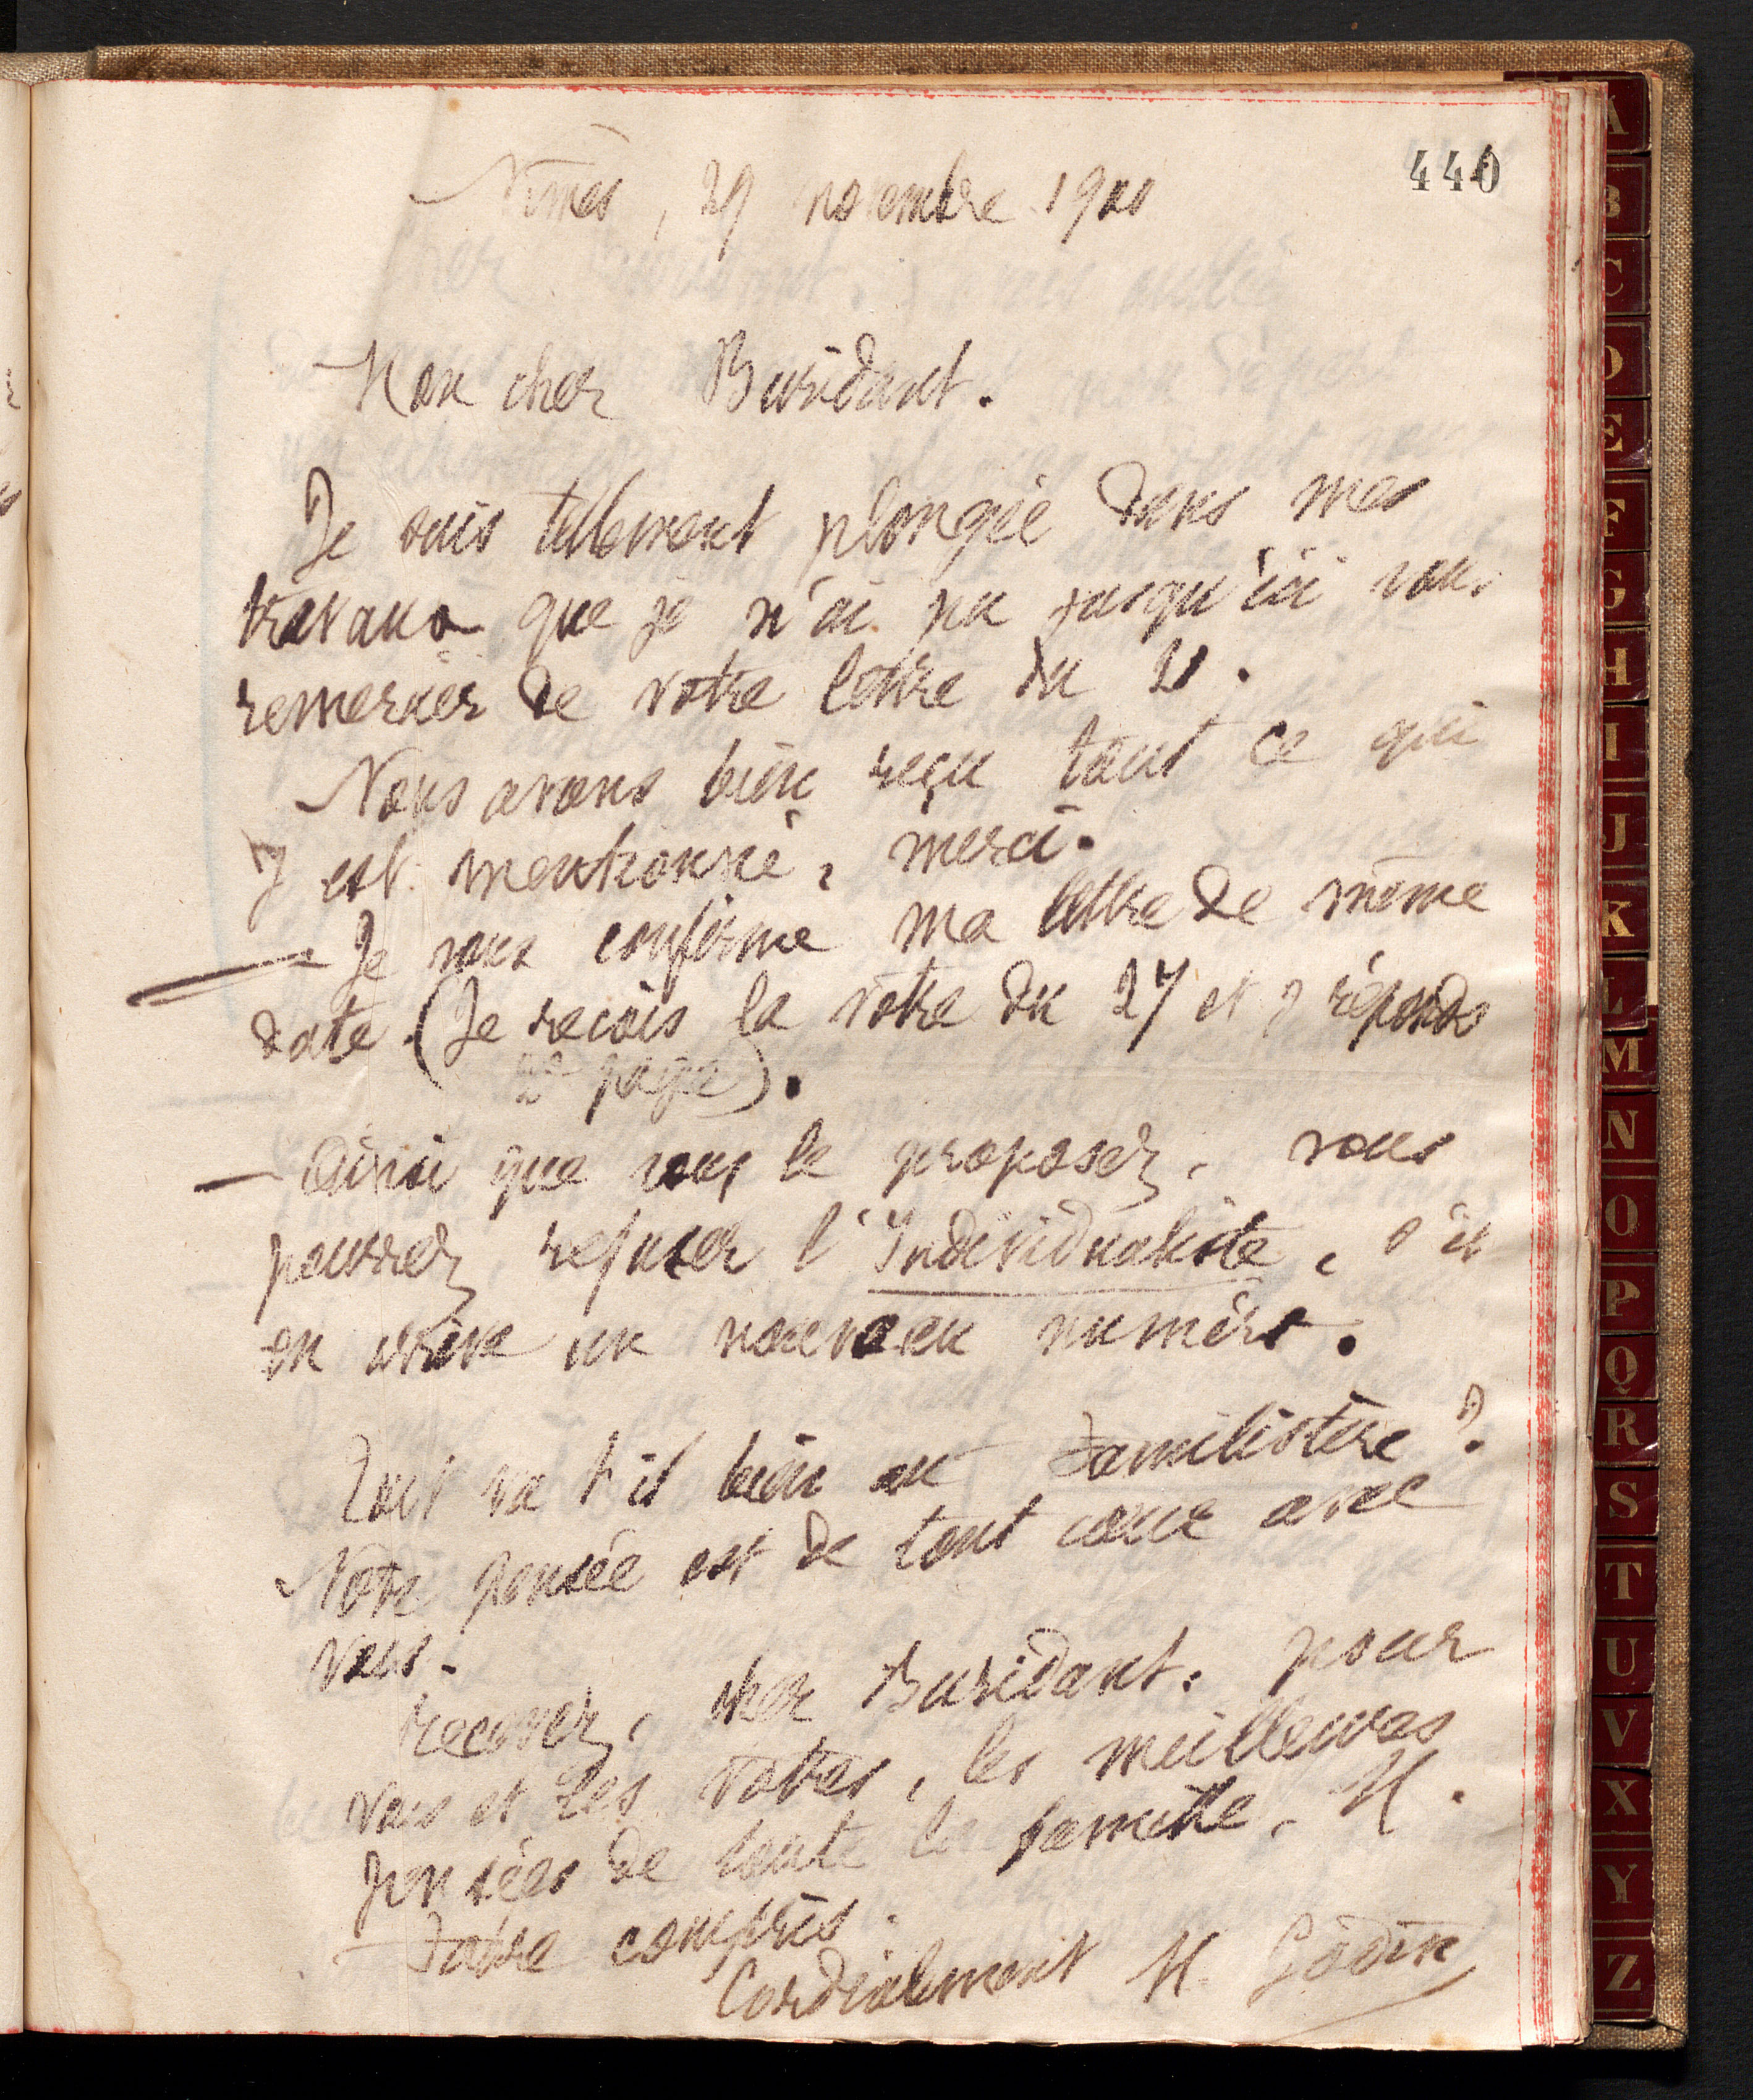 440
Nîmes, 29 novembre 1900
Mon cher Buridant.
Je suis tellement plongée dans mes
travaux que je n'ai pu jusqu'ici vous
remercier de votre lettre du 20.
Nous avons bien reçu tout ce qui
y est mentionné, merci.
— Je vous confirme ma lettre de même
date. (Je reçois la vôtre du 27 et y réponds
2e page).
— Ainsi que vous le proposez, vous
pourrez refuser l'Individualiste, s'il
en arrive un nouveau numéro.
Tout va t'il bien au Familistère?
Notre pensée est de tout cœur avec
vous.
Recevez, cher Buridant, pour
vous et les vôtres, les meilleures
pensées de toute la famille, M.
Fabre compris.
Cordialement M. Godin
A
B
C
D
E
F
G
H
I
J
K
L
M
N
O
P
Q
R
S
T
U
V
X
Y
Z